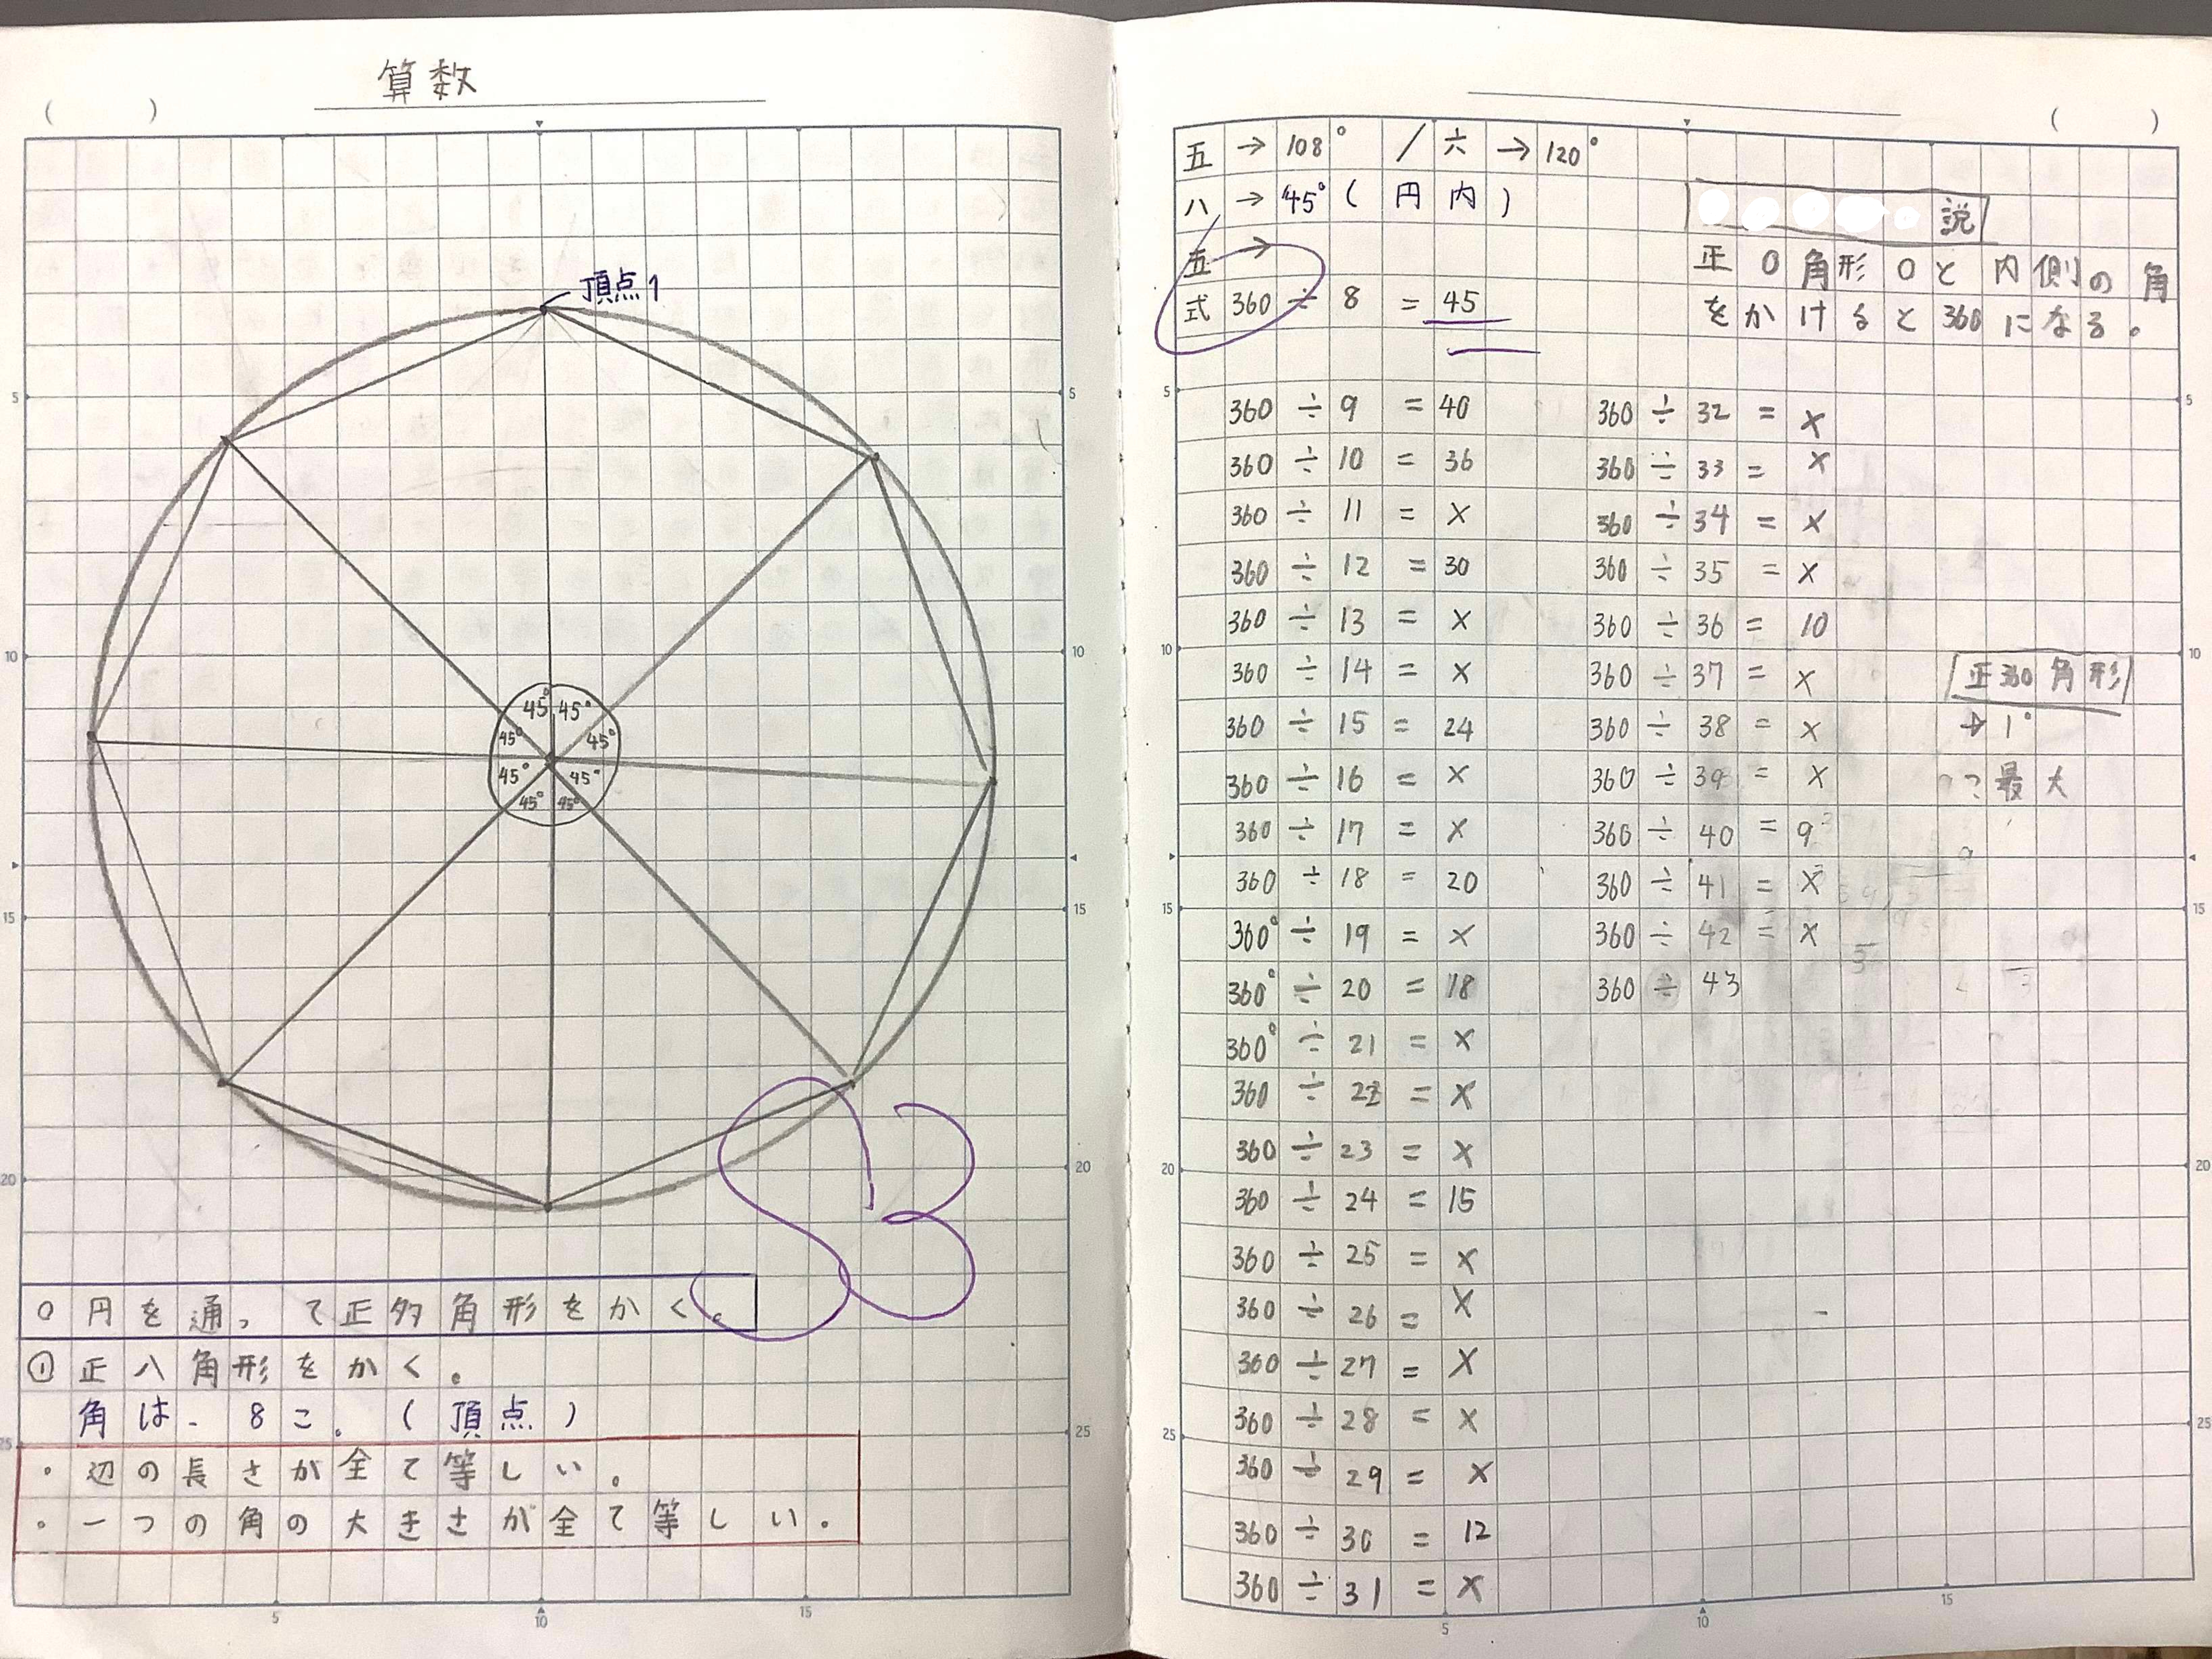 算数
( )
頂点1
45° 45°
45° 45°
45° 45°
45° 45°
5
10
15
20
25
5
10
15
20
25
S3
○円を通って正多角形をかく。
①正八角形をかく。
角は、8こ。(頂点)
・辺の長さが全て等しい。
・一つの角の大きさが全て等しい。
5 10 15
( )
五→108° / 六→120°
八→45°(円内)
五→
式 360÷8=45
説
正○角形○と内側の角
をかけると360になる。
360÷9=40
360÷10=36
360÷11=×
360÷12=30
360÷13=×
360÷14=×
360÷15=24
360÷16=×
360÷17=×
360÷18=20
360°÷19=×
360°÷20=18
360°÷21=×
360÷22=×
360÷23=×
360÷24=15
360÷25=×
360÷26=×
360÷27=×
360÷28=×
360÷29=×
360÷30=12
360÷31=×
360÷32=×
360÷33=×
360÷34=×
360÷35=×
360÷36=10
360÷37=×
360÷38=×
360÷39=×
360÷40=9
360÷41=×
360÷42=×
360÷43
正360角形
→1°
最大
5
10
15
20
25
5
10
15
20
25
5 10 15